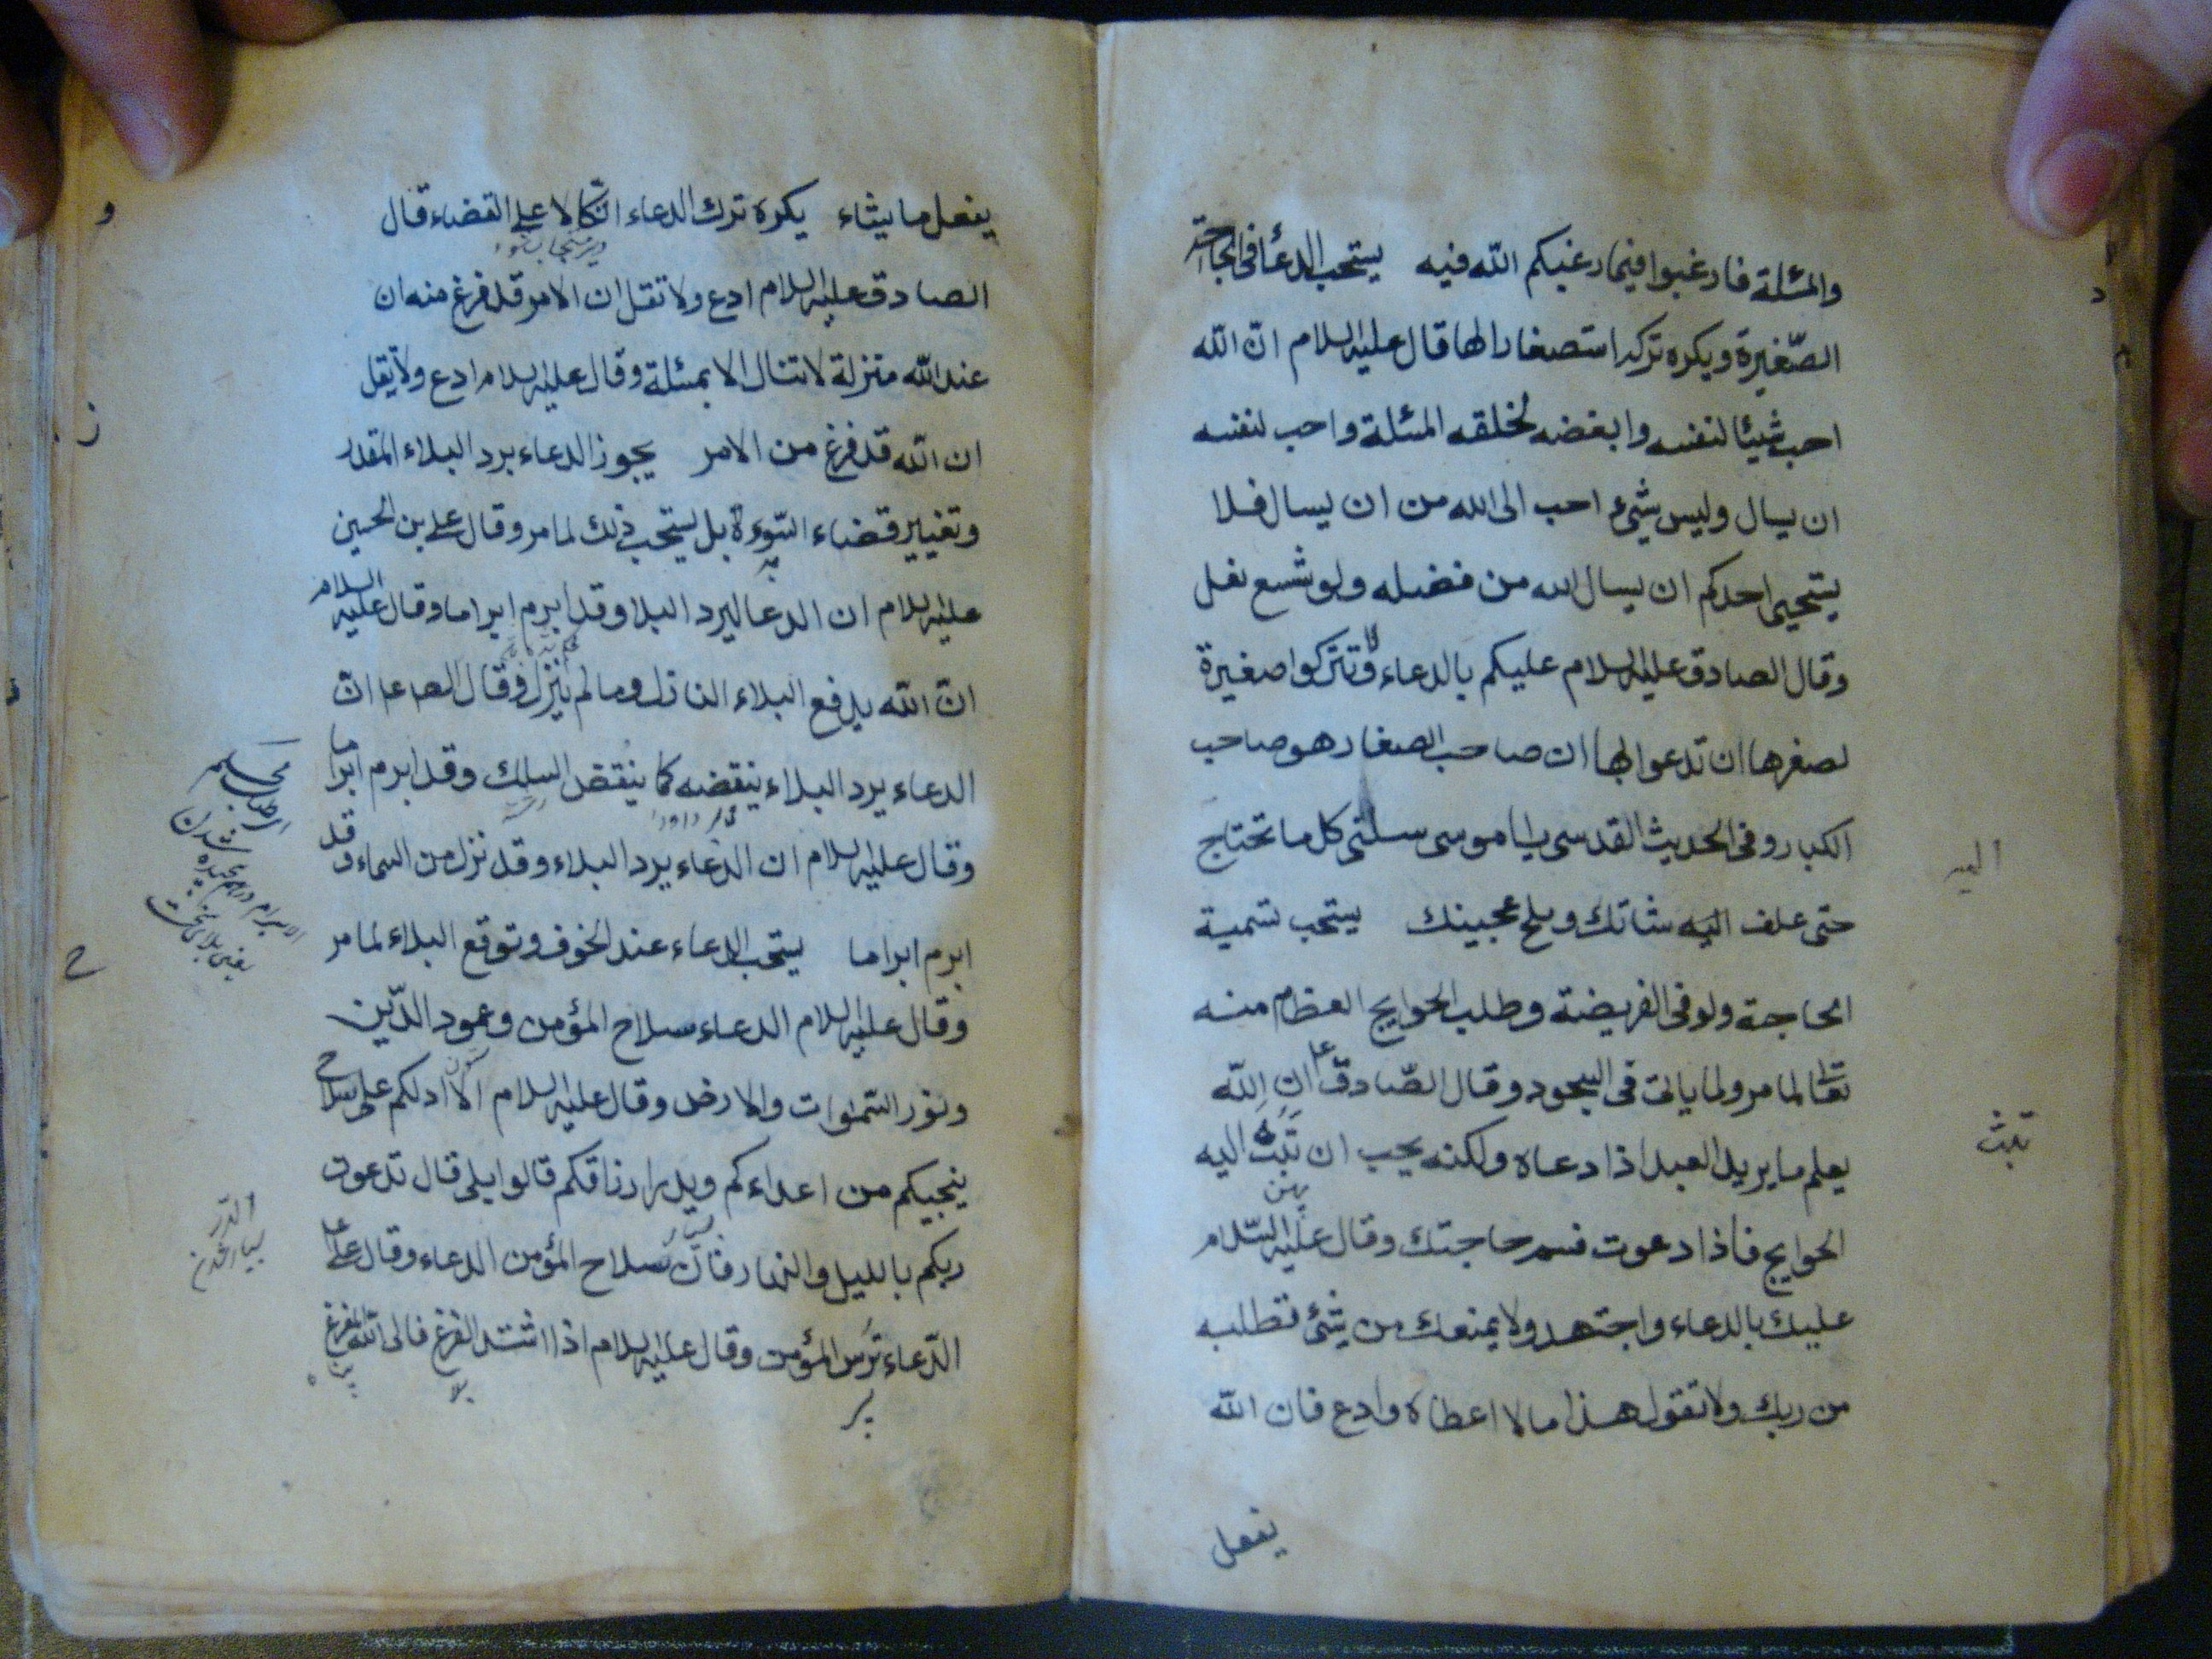 والمسئلة فارغبوا فيما رغبكم الله فيه يستحب الدعأ فى الحاجة
الصّغيرة ويكره تركه استصغارا لها قال عليه السلام انّ الله
احب شيئا لنفسه وابغضه لخلقه المسئلة واحب لنفسه
ان يسال وليس شىء احب الى الله من ان يسال فلا
يستحيى احدكم ان يسال الله من فضله ولو شسع نعل
وقال الصادق عليه السلام عليكم بالدعاء ولا تتركوا صغيرة
لصغرها ان تدعوا بها ان صاحب الصغار هو صاحب
الكبار وفى الحديث القدسى يا موسى سلنى كل ما تحتاج
اليه
حتى علف شاتك وملح عجينك يستحب تسمية
الحاجة ولو فى الفريضة وطلب الحوايج العظام منه
تعالى لما مر ولما ياتى فى السجود وقال الصّادق ع ان الله
يعلم ما يريد العبد اذا دعاه ولكنه يحب ان تبث اليه
تبث
الحوايج فاذا دعوت فسم حاجتك وقال عليه السّلام
عليك بالدعاء واجتهد ولا يمنعك من شىء تطلبه
من ربك ولا تقول هذا ما لا اعطاه وادع فان الله
يفعل
يفعل ما يشاء يكره ترك الدعاء اتّكالا على القضاء قال
و
الصادق عليه السلام ادع ولا تقل ان الامر قد فرغ منه ان
عند الله منزلة لا تنال الا بمسئلة وقال عليه السلام ادع ولا تقل
ز
ان الله قد فرغ من الامر يجوز الدعاء برد البلاء المقدر
وتغيير قضاء السّوء بل يستحب ذلك لما مر وقال على بن الحسين
عليه السلام ان الدعا ليرد البلا وقد ابرم ابراما وقال عليه السلام
انّ الله يدفع البلاء النازل وما لم ينزل وقال الصاعا انّ
الدعاء يرد البلاء ينقضه كما ينقض السلك وقد ابرم ابراما
وقال عليه السلام ان الدعاء يرد البلاء وقد نزل من السماء وقد
ابرم ابراما يستحب الدعاء عند الخوف وتوقع البلاء لما مر
ح
وقال عليه السلام الدعاء سلاح المؤمن وعمود الدّين
ونور السّموات والارض وقال عليه السلام الا ادلكم على سلاح
ينجيكم من اعداءكم ويدر ارزاقكم قالوا بلى قال تدعون
ربكم بالليل والنهار فانّ سلاح المؤمن الدعاء وقال ع
الدّعاء ترس المؤمن وقال عليه السلام اذا اشتد الفزع فالى الله المفزع